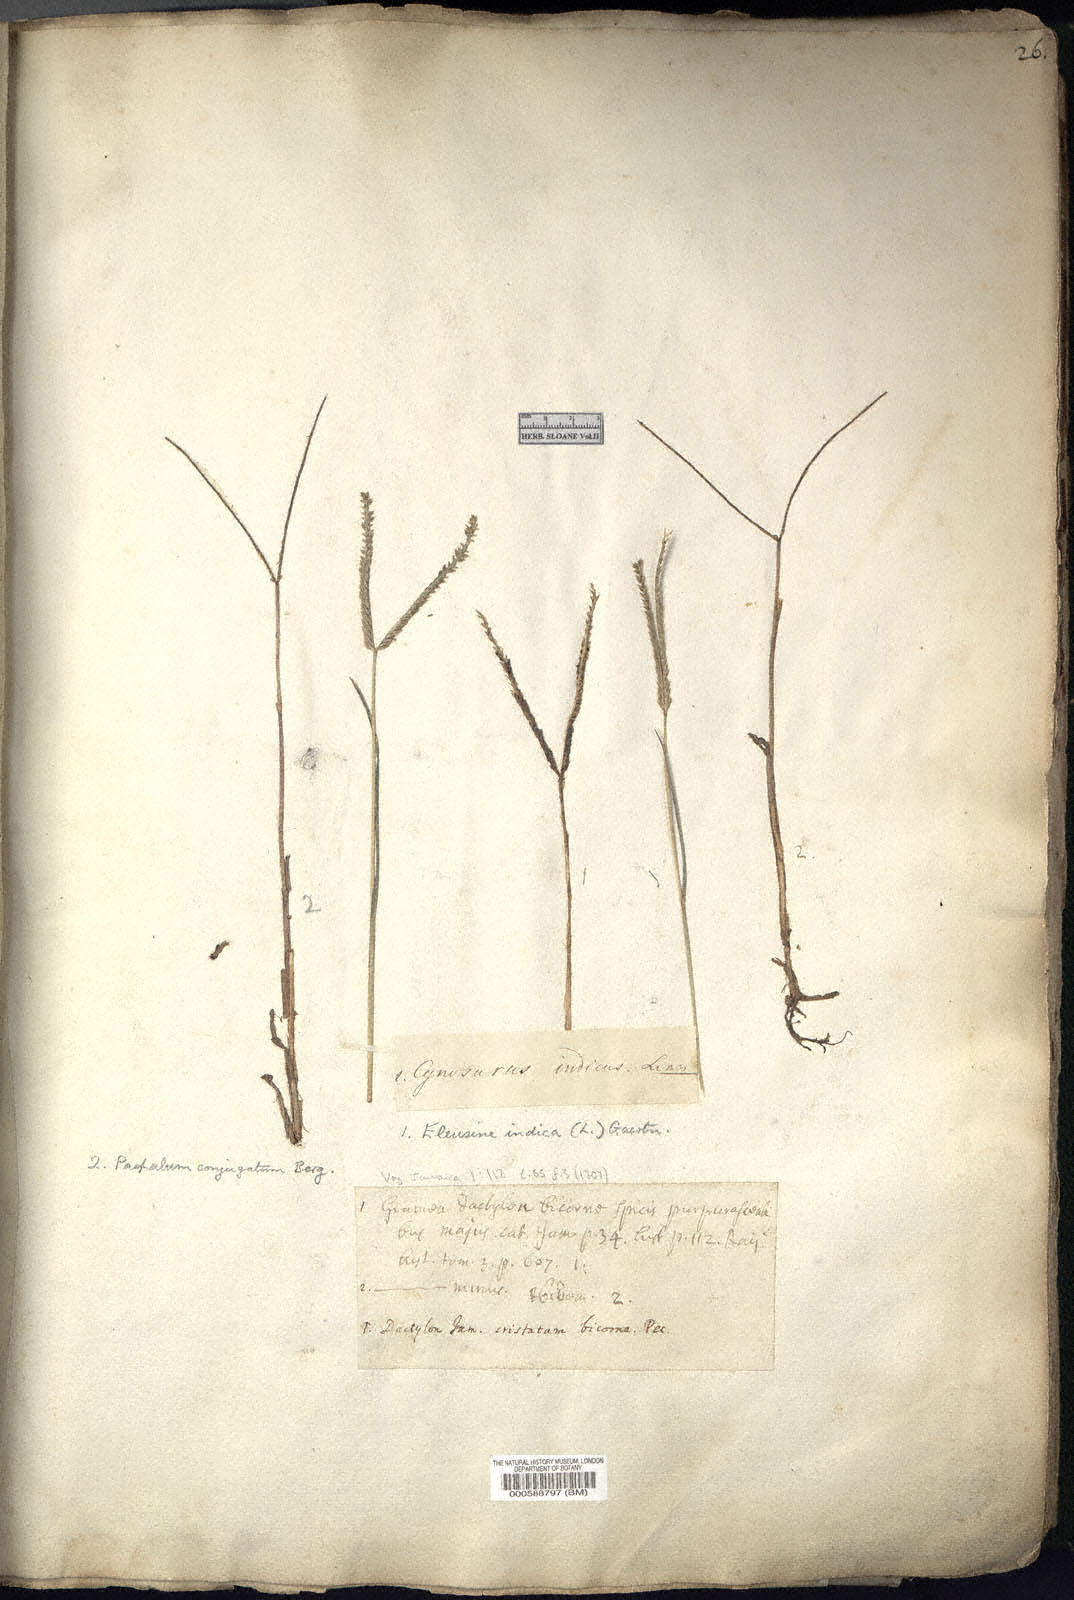 26.
HERB. SLOANE Vol.II
2
1
2.
1. Cynosurus indicus. Linn
1. Eleusine indica (L.) Gaertn.
2. Paspalum conjugatum Berg.
Voy. Jamaica 1: 112 (1707)
1 Gramen dactylon bicorne spicis purpurascenti
bus majus. cat. Jam p. 34. hist. p. 112. Raij
hist. tom. 3. p. 607. 1.
2. ——— minus. 2.
1. Dactylon Jam. cristatum bicorne. Pet.
THE NATURAL HISTORY MUSEUM, LONDON
DEPARTMENT OF BOTANY
000588797 (BM)